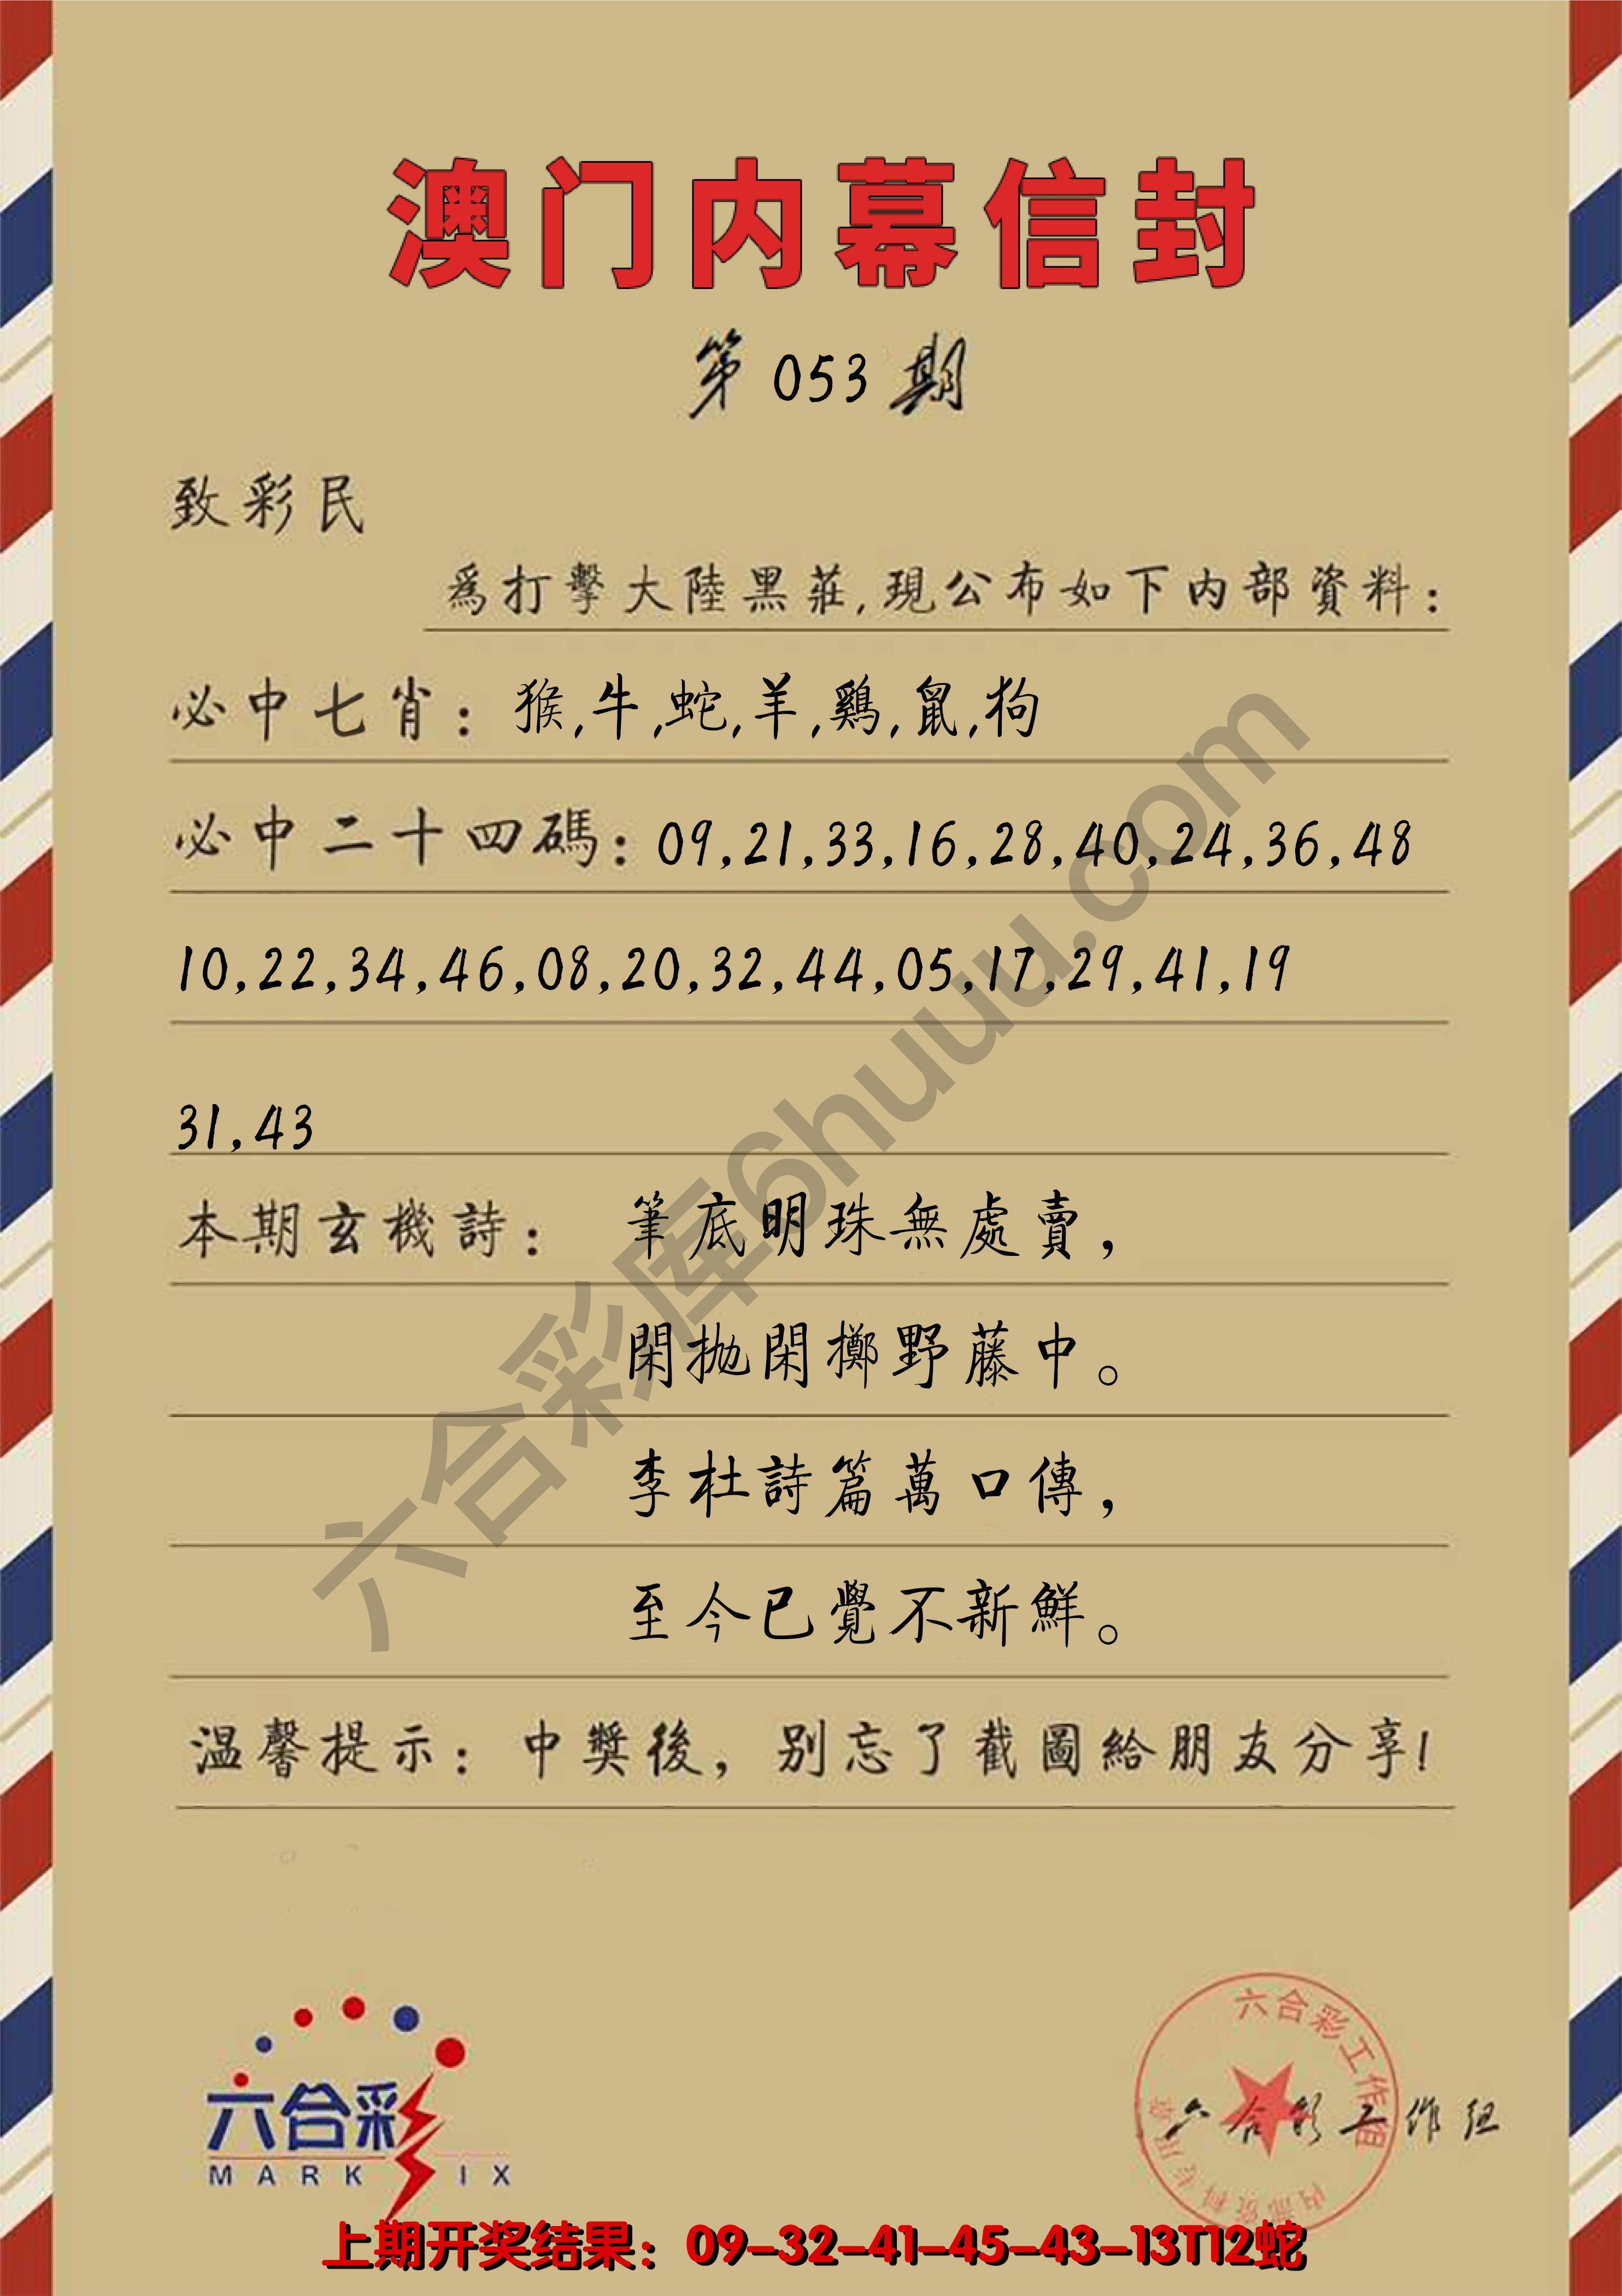 澳门内幕信封
第 053 期
致彩民
爲打擊大陸黑莊,現公布如下内部資料:
必中七肖: 猴,牛,蛇,羊,鷄,鼠,狗
必中二十四碼: 09,21,33,16,28,40,24,36,48
10,22,34,46,08,20,32,44,05,17,29,41,19
31,43
本期玄機詩: 筆底明珠無處賣,
閑抛閑擲野藤中。
李杜詩篇萬口傳,
至今已覺不新鮮。
温馨提示: 中獎後, 别忘了截圖給朋友分享!
六合彩库6huuu.com
六合彩
MARK IX
六合彩工作组
内部资料专用章
六合彩工作组
上期开奖结果: 09-32-41-45-43-13T12蛇